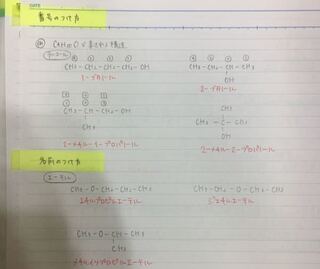 DATE
番号のつけ方
例 C4H10O で表される構造
アルコール
④ ③ ② ①
CH3-CH2-CH2-CH2-OH
1-ブタノール
④ ③ ② ①
CH3-CH2-CH-CH3
OH
2-ブタノール
③ ② ①
CH3-CH-CH2-OH
CH3
2-メチル-1-プロパノール
CH3
CH3-C-CH3
OH
2-メチル-2-プロパノール
名前のつけ方
エーテル
CH3-O-CH2-CH2-CH3
メチルプロピルエーテル
CH3-CH2-O-CH2-CH3
ジエチルエーテル
CH3-O-CH-CH3
CH3
メチルイソプロピルエーテル